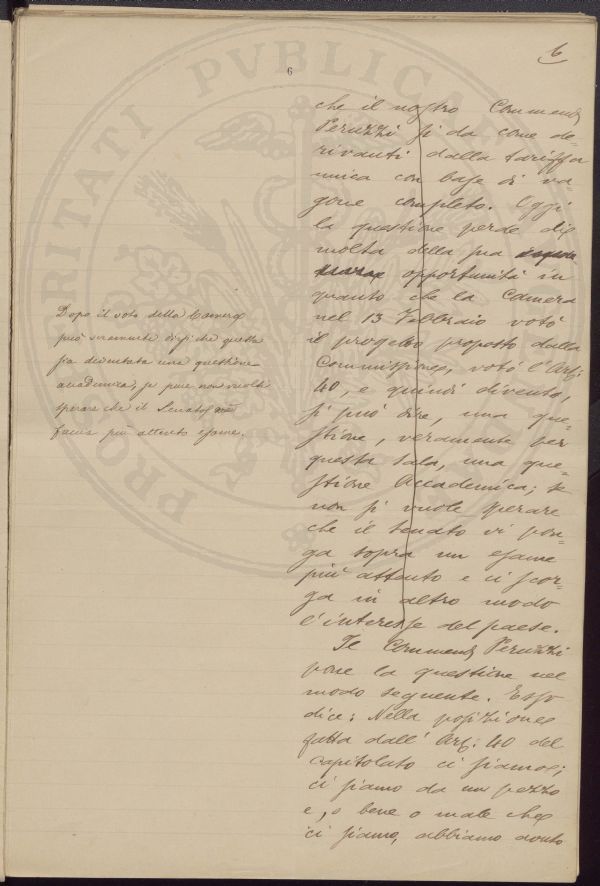 6
6
che il nostro Commend.
Peruzzi si da come de-
rivanti dalla tariffa
unica con base di va-
gone completo. Oggi
la questione perde di
molta della sua
opportunità in
quanto che la Camera
nel 13 Febbraio votò
il progetto proposto dalla
Commissione, votò l'Art:
40, e quindi diventò,
si può dire, una que-
stione, veramente per
questa sala, una que-
stione Accademica; se
non si vuole sperare
che il Senato vi pon-
ga sopra un esame
più attento e ci scor-
ga in altro modo
l'interesse del paese.
Il Commend. Peruzzi
pone la questione nel
modo seguente. Esso
dice: Nella posizione
fatta dall'Art: 40 del
Capitolato ci siamo;
ci siamo da un pezzo
e, o bene o male che
ci siamo, abbiamo avuto
Dopo il voto della Camera
può veramente dirsi che questa
sia diventata una questione
accademica, se pure non vuolsi
sperare che il Senato ne
faccia più attento esame.
PROSPERITATI PVBLICAE